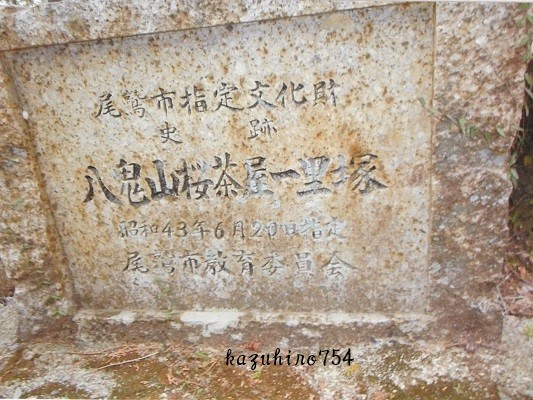 尾鷲市指定文化財
史跡
八鬼山桜茶屋一里塚
昭和43年6月20日指定
尾鷲市教育委員会
kazuhiro754